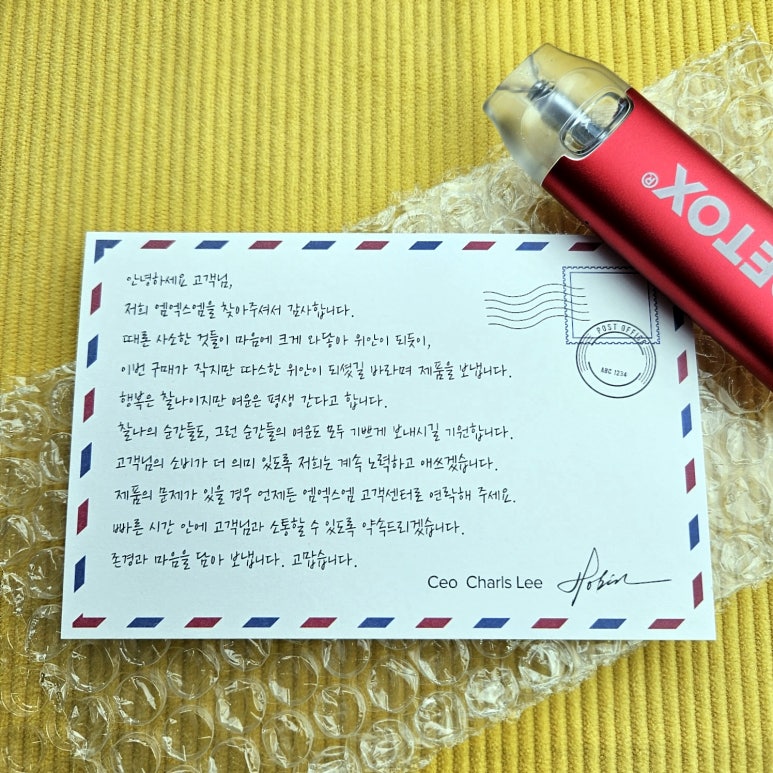 안녕하세요 고객님,
저희 엠엑스엠을 찾아주셔서 감사합니다.
때론 사소한 것들이 마음에 크게 와닿아 위안이 되듯이,
이번 구매가 작지만 따스한 위안이 되셨길 바라며 제품을 보냅니다.
행복은 찰나이지만 여운은 평생 간다고 합니다.
찰나의 순간들도, 그런 순간들의 여운도 모두 기쁘게 보내시길 기원합니다.
고객님의 소비가 더 의미 있도록 저희는 계속 노력하고 애쓰겠습니다.
제품의 문제가 있을 경우 언제든 엠엑스엠 고객센터로 연락해 주세요.
빠른 시간 안에 고객님과 소통할 수 있도록 약속드리겠습니다.
존경과 마음을 담아 보냅니다. 고맙습니다.
Ceo Charls Lee Robin
POST OFFICE
ABC 1234
ETOX®